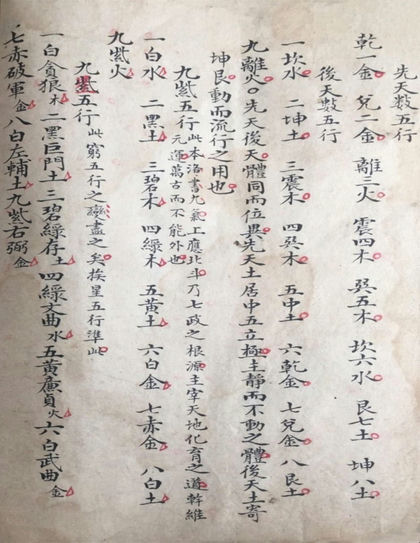 先天數五行
乾一金 兌二金 離三火 震四木 巽五木 坎六水 艮七土 坤八土
後天數五行
一坎水 二坤土 三震木 四巽木 五中土 六乾金 七兌金 八艮土
九離火○先天後天體同而位異先天土居中五立極主靜而不動之體後天土寄
坤艮動而流行之用也
九紫五行此本洛書九氣上應北斗乃七政之根源主宰天地化育之道幹維
元運萬古而不能外也
一白水 二黑土 三碧木 四綠木 五黃土 六白金 七赤金 八白土
九紫火
九紫五行此窮五行之變盡之矣挨星五行準此
一白貪狼木二黑巨門土三碧綠存土四綠文曲水五黃廉貞火六白武曲金
七赤破軍金八白左輔土九紫右弼金